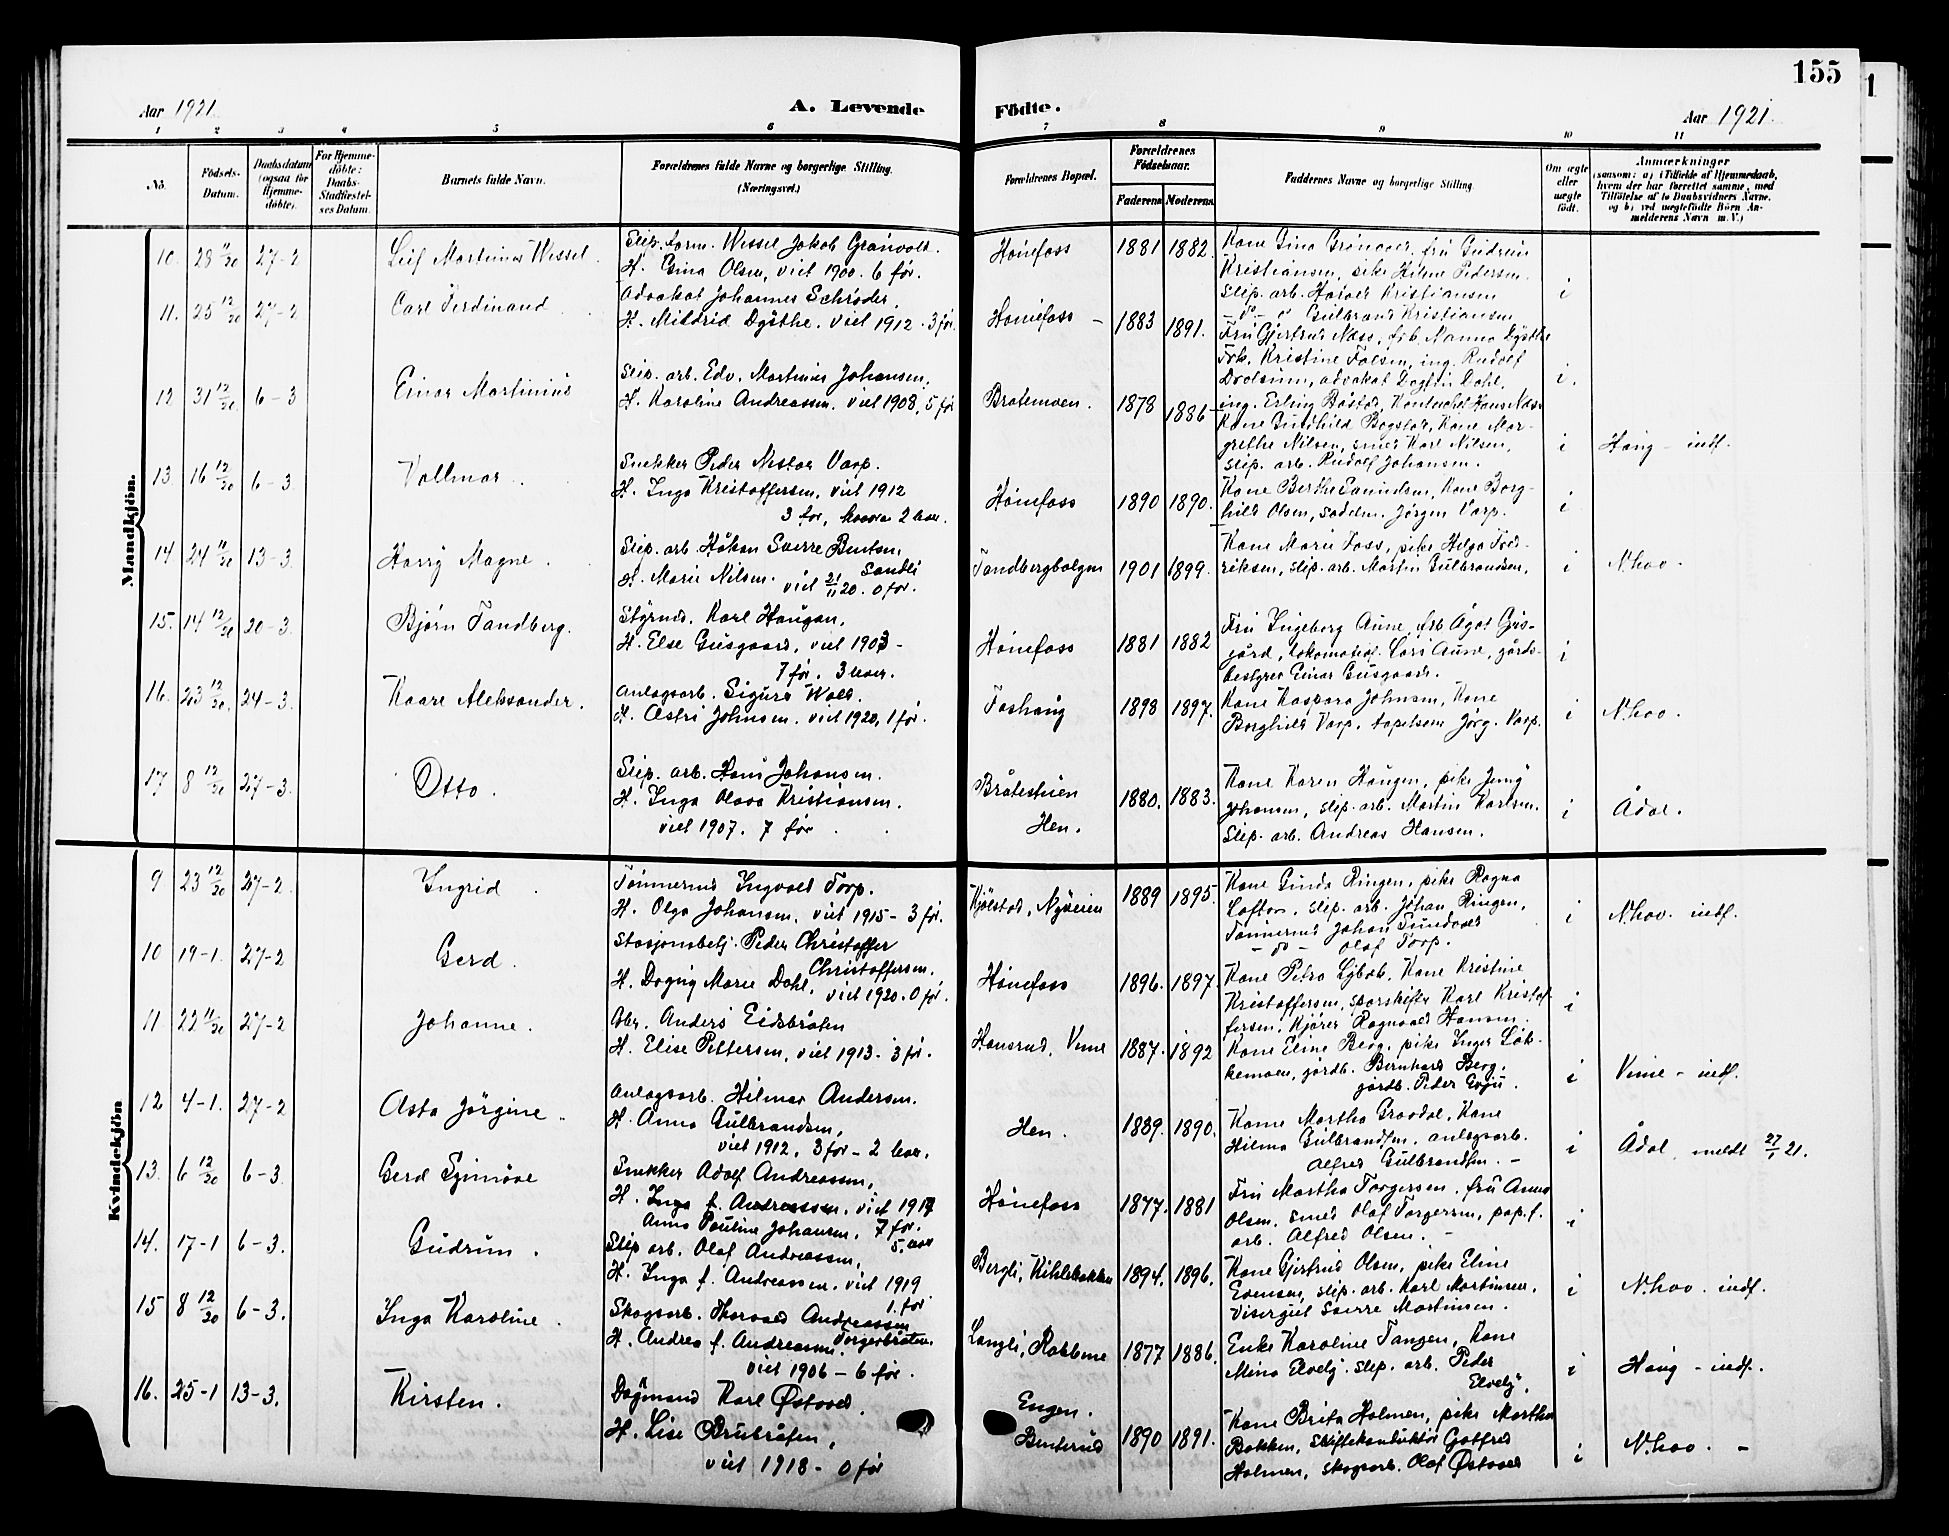 155
Aar 1921.
A. Levende
Födte.
Aar 1921.
1 2 3 4 5 6 7 8 9 10 11
No.
Födsels-
Datum.
Daabsdatum
(ogsaa for
Hjemme-
döbte).
For Hjemme-
döbte:
Daabs-
Stadfæstel-
ses Datum.
Barnets fulde Navn.
Forældrenes fulde Navne og borgerlige Stilling.
(Næringsvei.)
Forældrenes Bopæl.
Forældrenes
Födselsaar.
Faderens Moderens
Faddernes Navne og borgerlige Stilling.
Om ægte
eller
uægte
født.
Anmærkninger
(saasom: a) i Tilfælde af Hjemmedaab,
hvem der har forrettet samme, med
Tilföielse af to Daabsvidners Navne.
og b) ved uægtefödte Börn An-
melderens Navn m. V.)
Mandkjön.
10. 28 11/20 27-2 Leif Martinus Wessel.
Slip. form. Wessel Jakob Granvold.
H. Gina Olsen, viet 1900. 6 før.
Hønefoss 1881 1882.
Kristiansen, pike Hilma Pedersen.
Slip. arb. Harald Kristiansen
Gulbrand Kristiansen
i
11. 25 12/20 27-2 Carl Ferdinand
Advokat Johannes Schrøder.
H. Mildrid Dysthe. viet 1912. 3 før.
Hønefoss - 1883 1891.
Fru Gjertrud Næss, frk. Nanna Dysthe
Frk. Kristine Falsen, ing. Rudolf
advokat Dagfin Dahl,
i.
12 31 12/20 6-3 Einar Martinius
Slip. arb. Edv. Martinius Johansen.
H. Karoline Andreassen. viet 1908, 5 før
Bratemoen. 1878 1886
Kone Gunhild Bogstad, Kone Mar-
grethe Nilsen, smed Karl Nilsen,
slip. arb. Rudolf Johansen.
i Haug - indf.
13. 16 12/20 6-3 Vallmar.
Snekker Peder Nestor Varp.
H. Inga Kristoffersen, viet 1912
3 før, hvorav 2 lever.
Hønefoss 1890 1890.
Kone Berthe Samuelsen, Kone Borg-
hild Olsen, sadelm. Jørgen Varp.
i
14. 24 11/20 13-3 Harry Magne.
Slip. arb. Håkon Sverre Bentsen
Sandli
H. Marie Nilsen. viet 21/11 20. 0 før.
Tandbergbolgen 1901 1899.
Kone Marie Foss, pike Helga Fred-
riksen, slip. arb. Martin Gulbrandsen,
i N.hov.
15. 14 12/20 20-3. Bjørn Tandberg.
Styrmd. Karl Haugan.
H. Else Gusgaard, viet 1903 -
7 før. 3 lever.
Hønefoss 1881 1882
Fru Ingeborg Aune, frk Ågot Gus-
gård, lokomotivf. Lars Aune, gårds-
bestyrer Einar Gusgaard.
i
16. 23 12/20. 24-3. Kaare Aleksander.
Anlagsarb. Sigurd Wold.
H. Astri Johnsen. viet 1920, 1 før.
Foshaug 1898 1897.
Kone Kaspara Johnsen, Kone
Borghild Varp, tapetsem Jørg. Varp.
i N.hov.
17 8 12/20 27-3. Otto.
Slip. arb. Hans Johansen.
H. Inga Olava Kristiansen.
viet 1907. 7 før.
Bråtestuen
Hen. 1880. 1883.
Kone Karen Haugen, pike Jenny
Johansen, slip. arb. Martin Karlsen.
Slip. arb. Andreas Hansen.
i Ådal.
Kvindekjön
9 23 12/20 27-2. Ingrid.
Tømmermd Ingvald Torp.
H. Olga Johansen, viet 1915 - 3 før.
Kjølstad, Nyveien 1889 1895.
Kone Gunda Ringen, pike Ragna
Lofton, slip. arb. Johan Ringen,
Tømmermd Johan Sundvold
- do - Olaf Torp.
i N.hov. indf.
10 19-1. 27-2 Gerd.
Stasjonsbetj. Peder Christoffer
Christoffersen.
H. Dagny Marie Dahl, viet 1920. 0 før.
Hønefoss 1896. 1897
Kone Petra Lybak, Kone Kristine
Kristoffersen, sporskifter Karl Kristof-
fersen, Kjører Ragnvald Hansen.
i
11. 22 11/20 27-2 Johanne.
Gbr. Anders Eidsbråten
H. Elise Pettersen, viet 1913 - 3 før.
Hansrud, Vime 1887. 1892
Kone Eline Berg, pike Inger Løk-
kemoen, gårdb. Bernhard Berg,
gårdb. Peder Gvju.
i Vime - indf.
12 4-1. 27-2 Asta Jørgine.
Anlagsarb. Hilmar Andersen.
H. Anna Gulbrandsen,
viet 1912, 3 før - 2 lever.
Hen. 1889. 1890.
Kone Martha Graadal, Kone
Hilma Gulbrandsen, anlagsarb.
Alfred Gulbrandsen. -
i Ådal, meldt 27/1 21.
13. 6 12/20 6-3. Gerd Synnøve
Snekker Adolf Andreassen,
H. Inga f. Andreassen. viet 1917
Anna Pauline Johansen, 7 før.
5 lever
Hønefoss 1877. 1881
Fru Martha Torgersen, fru Anna
Olsen, smed Olaf Torgersen, pap.f.
arb. Alfred Olsen. -
i
14. 17-1 6-3. Gudrun.
Slip arb. Olaf Andreassen,
H. Inga f. Andreassen. viet 1919
1. før
Bergli, Kihlebakken 1894. 1896.
Kone Gjertrud Olsen, pike Eline
Evensen, slip. arb. Karl Martinsen.
Visergut Sverre Martinsen.
i N.hov. indf.
15 8 12/20 6-3. Inga Karoline.
Skogsarb. Thorvald Andreassen
Torgerbråten.
H. Andrea f. Andreassen.
viet 1906 - 6 før.
Langli, 1877 1886.
Enke Karoline Tangen, Kone
Mina Elvelj. slip. arb. Peder
Elvelj.
i Haug - indf.
16. 25-1 13-3. Kirsten.
Dagmand Karl Østvold.
H. Lise Brubråten,
viet 1918 - 0 før
Engen.
Benterud 1890 1891.
Kone Brita Holmen, pike Martha
Bakken, skiftekonduktør Gotfred
Holmen, skogsarb. Olaf Østvold
i N.hov. -